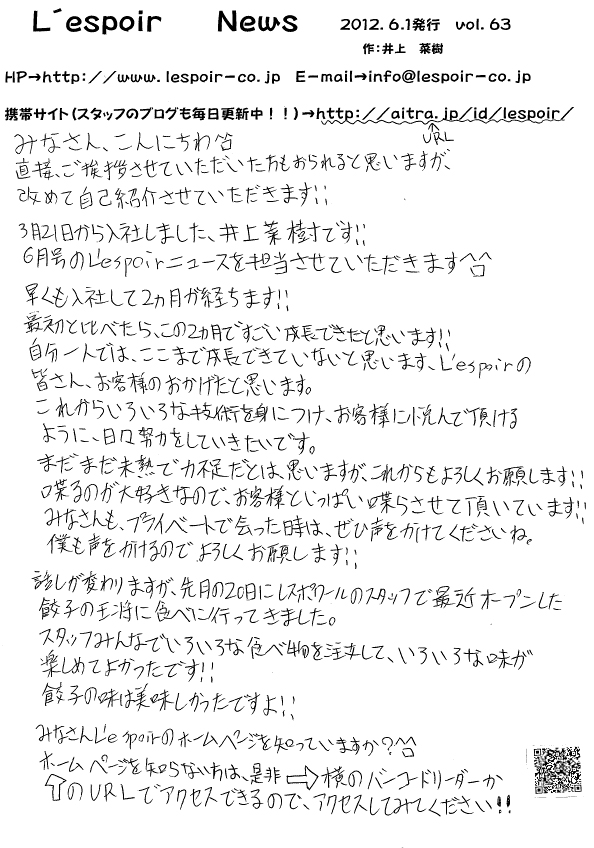 L'espoir News 2012.6.1発行 vol.63
作:井上 菜樹
HP→http://www.lespoir-co.jp E-mail→info@lespoir-co.jp
携帯サイト(スタッフのブログも毎日更新中!!)→http://aitra.jp/id/lespoir/
↑
URL
みなさん、こんにちわ^^
直接、ご挨拶させていただいた方もおられると思いますが、
改めて自己紹介させていただきます!!
3月21日から入社しました、井上菜樹です!!
6月号のL'espoirニュースを担当させていただきます^^
早くも入社して2ヵ月が経ちます!!
最初と比べたら、この2ヵ月ですごい成長できたと思います!!
自分一人では、ここまで成長できていないと思います、L'espoirの
皆さん、お客様のおかげだと思います。
これからいろいろな技術を身につけ、お客様に悦んで頂ける
ように、日々努力をしていきたいです。
まだまだ未熟で力不足だとは、思いますが、これからもよろしくお願します!!
喋るのが大好きなので、お客様といっぱい喋らさせて頂いています!!
みなさんも、プライベートで会った時は、ぜひ声をかけてくださいね。
僕も声をかけるのでよろしくお願します!!
話しが変わりますが、先月の20日にレスポワールのスタッフで最近オープンした
餃子の王将に食べに行ってきました。
スタッフみんなでいろいろな食べ物を注文して、いろいろな味が
楽しめてよかったです!!
餃子の味は美味しかったですよ!!
みなさんL'espoirのホームページを知っていますか?^^
ホームページを知らない方は、是非⇨横のバーコードリーダーか
⇧のURLでアクセスできるので、アクセスしてみてください!!